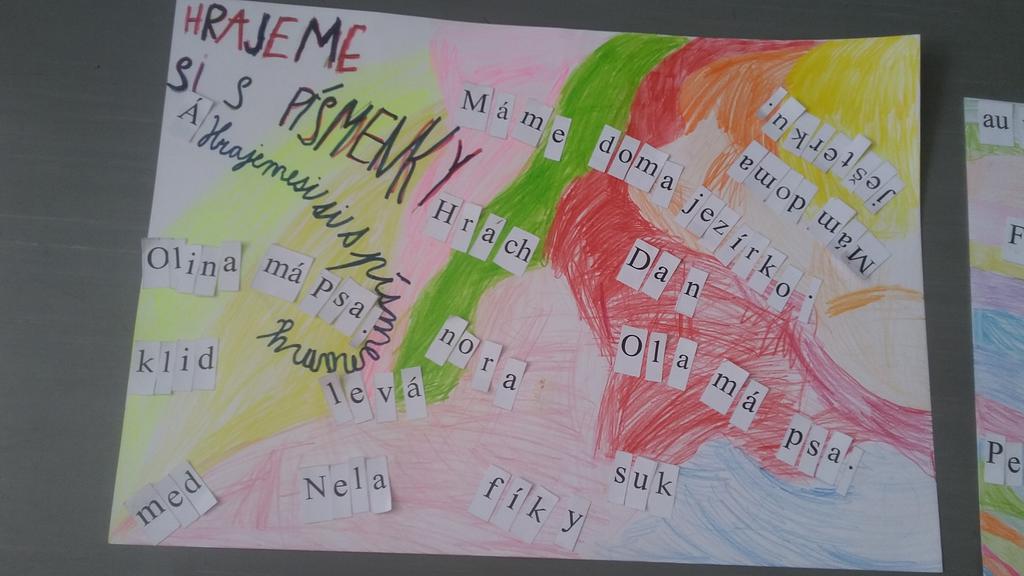 HRAJEME
SI S PÍSMENKY
Á
Hrajemesi si s písme
Máme doma jezírko.
Mám doma
ještěrku.
Hrách
Olina má Psa.
Dan
klid
nora
Ola má psa.
levá
med
Nela
fíky
suk
au
F
Pe